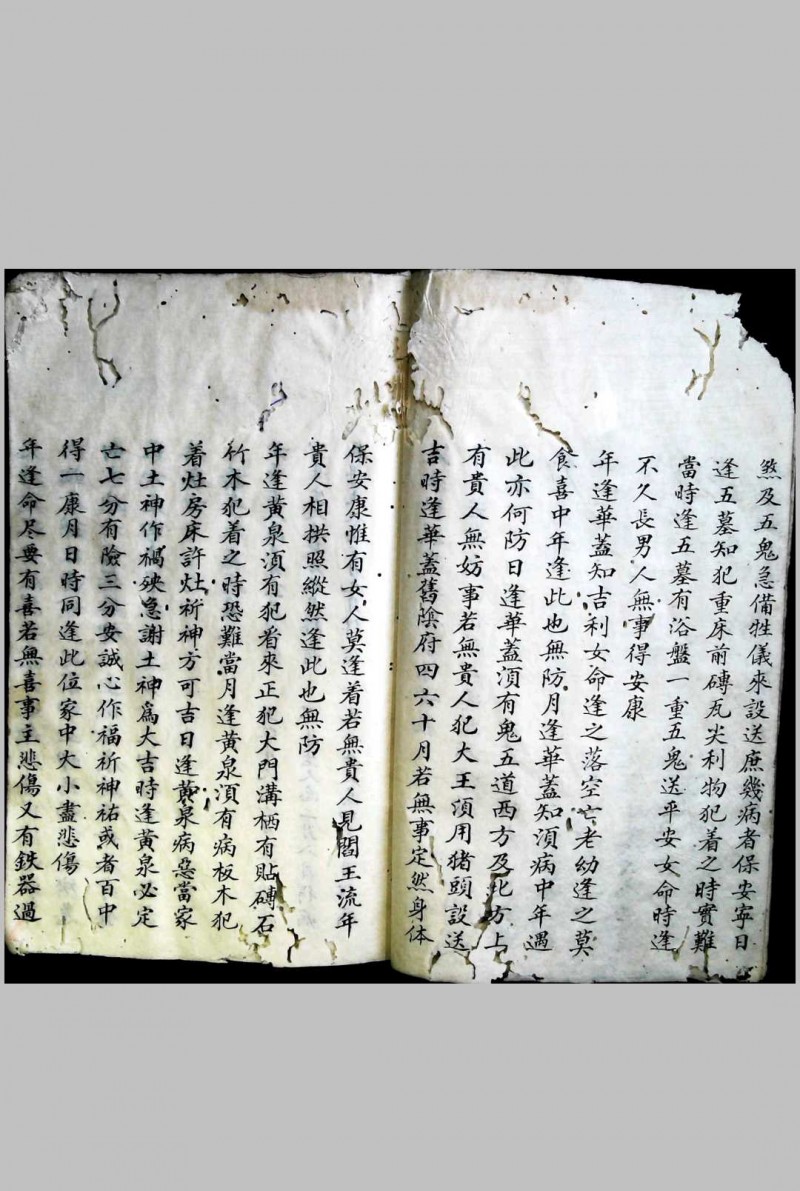 煞及五鬼急備牲儀來設送庶幾病者保安寧日
逢五墓知犯重床前磚瓦尖利物犯着之時實難
當時逢五墓有浴盤一重五鬼送平安女命時逢
不久長男人無事得安康
年逢華蓋知吉利女命逢之落空亡老幼逢之莫
食喜中年逢此也無防月逢華蓋知須病中年遇
此亦何防日逢華蓋須有鬼五道西方及北方上
有貴人無妨事若無貴人犯大王須用猪頭設送
吉時逢華蓋舊陰府四六十月若無事定然身体
保安康惟有女人莫逢着若無貴人見閻王流年
貴人相拱照縱然逢此也無防
年逢黃泉須有犯看來正犯大門溝栖有貼磚石
竹木犯着之時恐難當月逢黃泉須有病板木犯
着灶房床許灶祈神方可吉日逢黃泉病惡當家
中土神作禍殃急謝土神爲大吉時逢黃泉必定
亡七分有險三分安誠心作福祈神祐或者百中
得一康月日時同逢此位家中大小盡悲傷
年逢命尽要有喜若無喜事主悲傷又有鉄器過